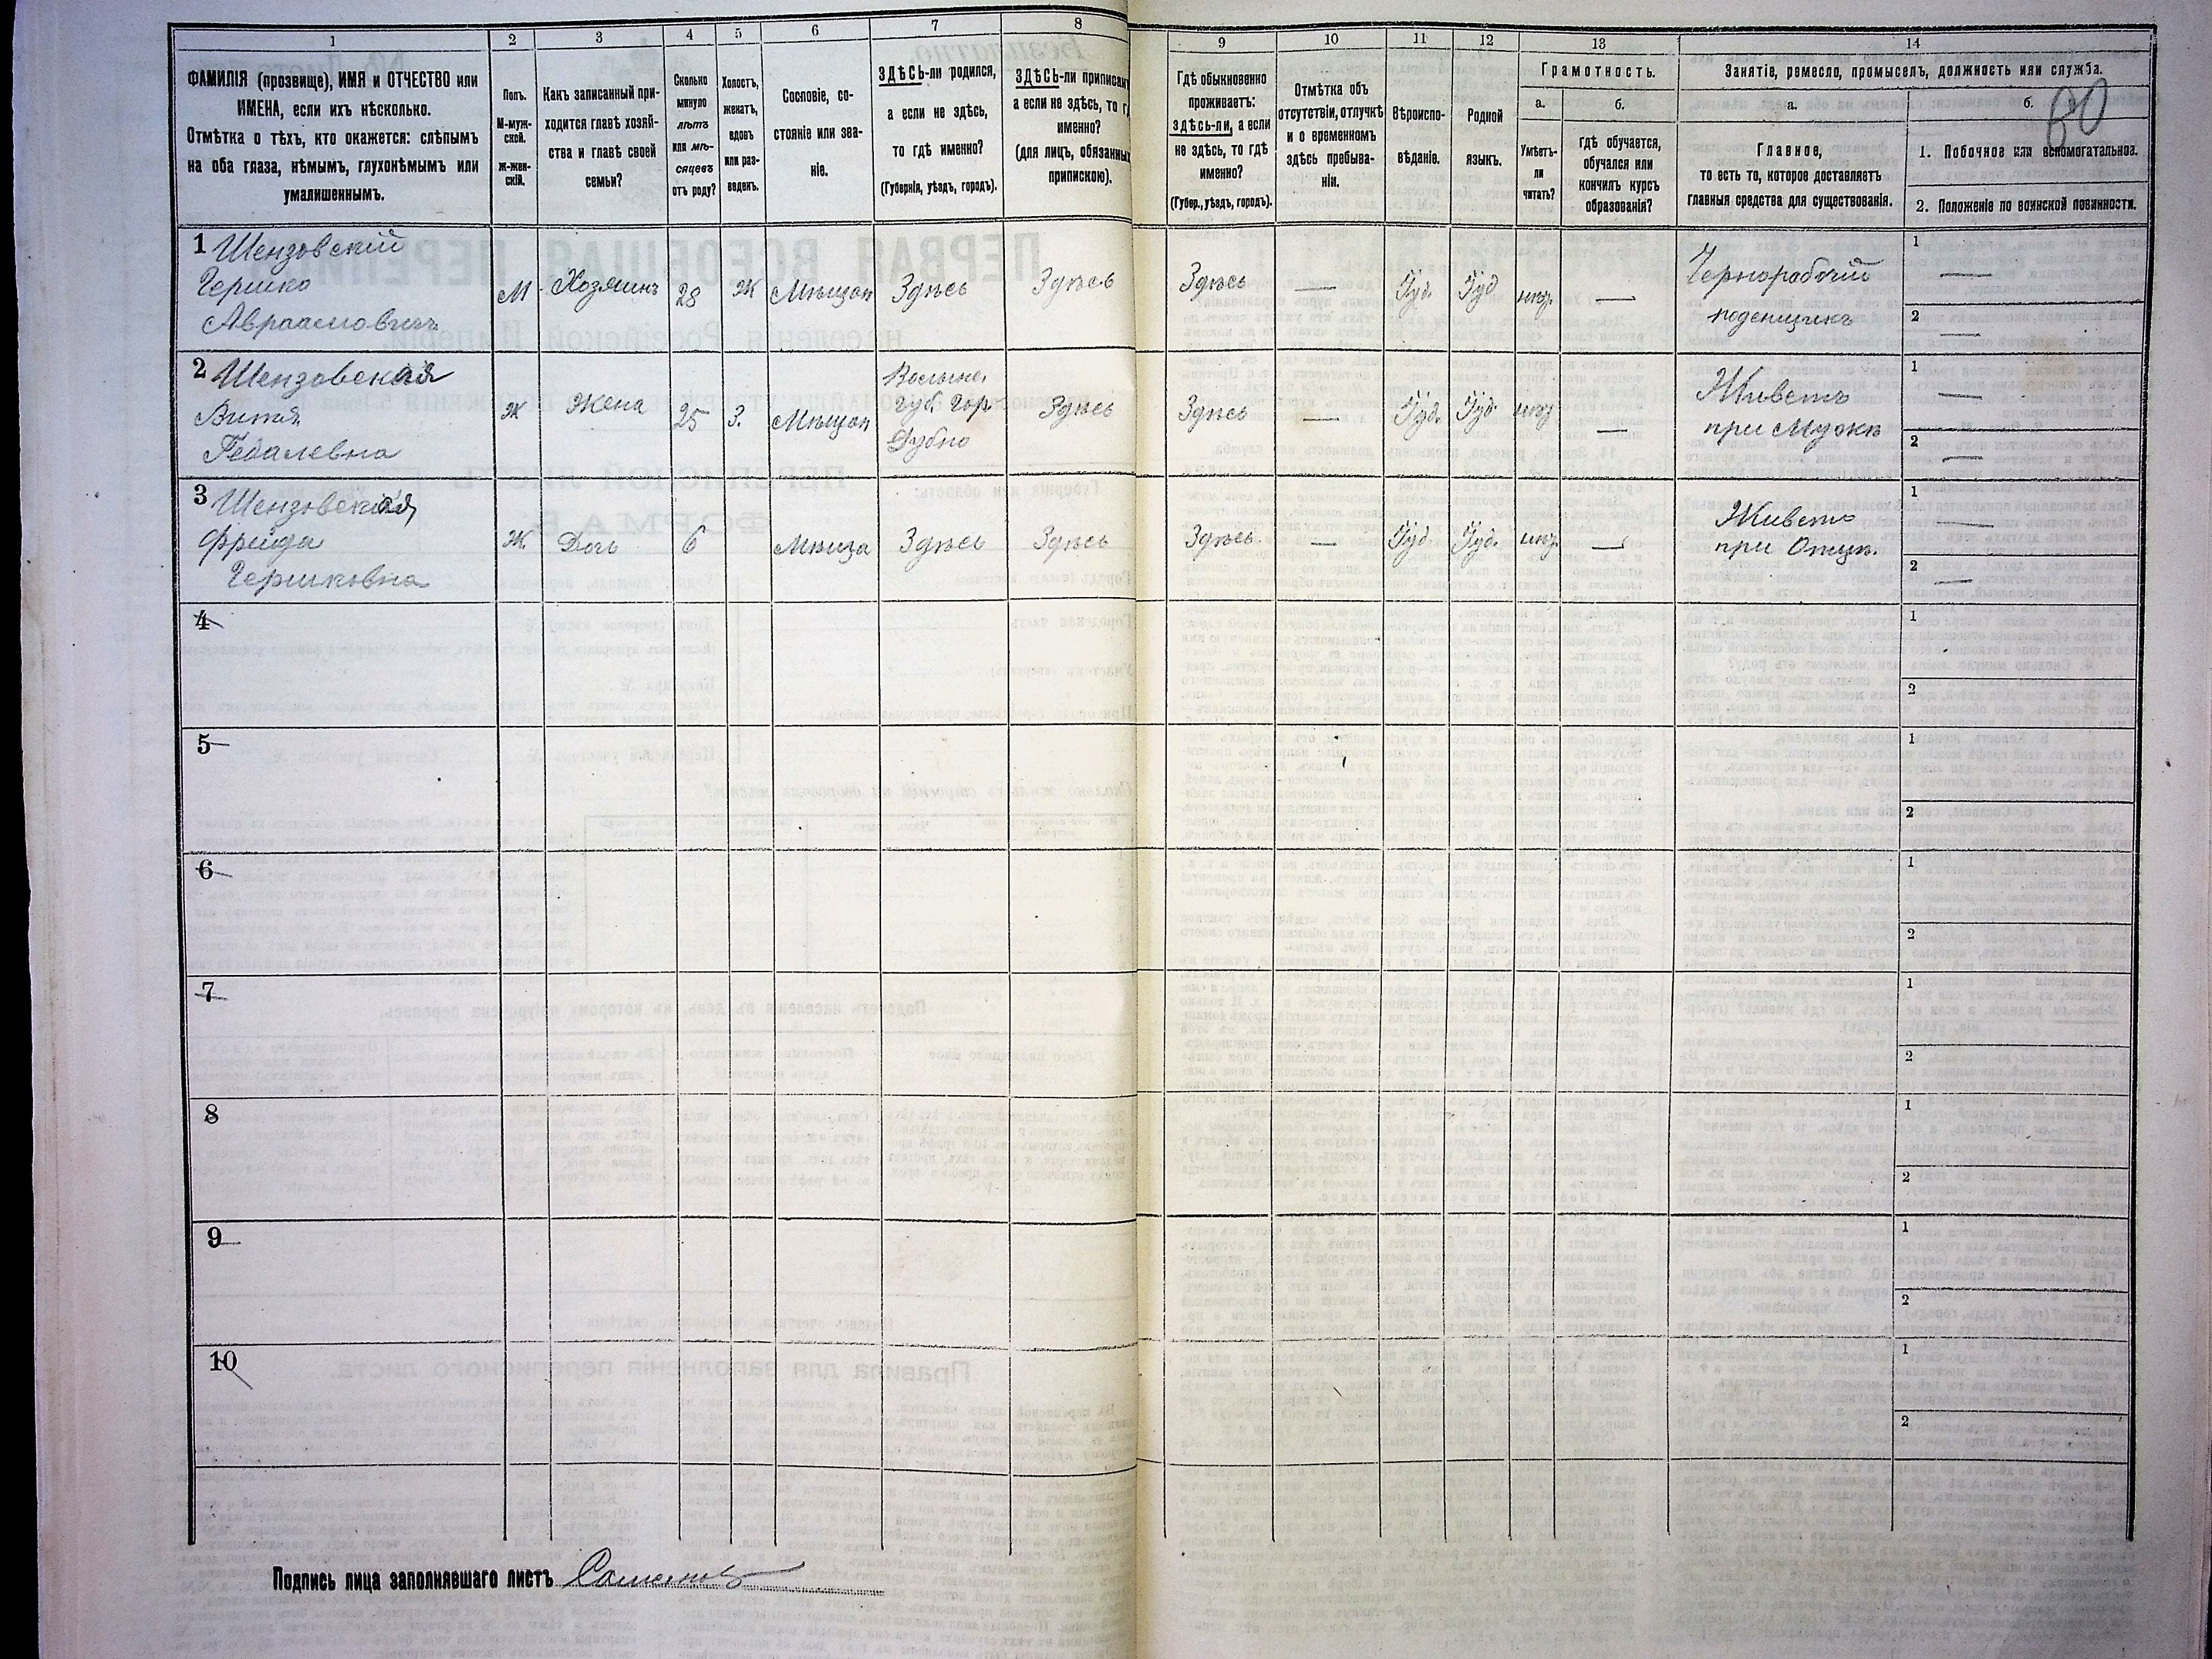 1 2 3 4 5 6 7 8 9 10 11 12 13 14
ФАМИЛІЯ (прозвище), ИМЯ и ОТЧЕСТВО или
ИМЕНА, если ихъ нѣсколько.
Отмѣтка о тѣхъ, кто окажется: слѣпымъ
на оба глаза, нѣмымъ, глухонѣмымъ или
умалишеннымъ.
Полъ.
М-муж-
ской.
ж-жен-
скій.
Какъ записанный при-
ходится главѣ хозяй-
ства и главѣ своей
семьи?
Сколько
минуло
лѣтъ
или мѣ-
сяцевъ
отъ роду?
Холостъ,
женатъ,
вдовъ
или раз-
веденъ.
Сословіе, со-
стояніе или зва-
ніе.
ЗДѢСЬ-ли родился,
а если не здѣсь,
то гдѣ именно?
(Губернія, уѣздъ, городъ).
ЗДѢСЬ-ли приписанъ
а если не здѣсь, то г
именно?
(для лицъ, обязанныхъ
припискою).
Гдѣ обыкновенно
проживаетъ:
здѣсь-ли, а если
не здѣсь, то гдѣ
именно?
(Губер., уѣздъ, городъ).
Отмѣтка объ
отсутствіи, отлучкѣ
и о временномъ
здѣсь пребыва-
ніи.
Вѣроиспо-
вѣданіе.
Родной
языкъ.
Грамотность.
а. б.
Умѣетъ-
ли
читать?
Гдѣ обучается,
обучался или
кончилъ курсъ
образованія?
Занятіе, ремесло, промыселъ, должность или служба.
а. б.
60
Главное,
то есть то, которое доставляетъ
главныя средства для существованія.
1. Побочное или вспомогательное.
2. Положеніе по воинской повинности.
1 Шензовскій
Гершко
Авраамовичъ
М
Хозяинъ
28
Ж
Мѣщан
Здѣсь
Здѣсь
Здѣсь
—
Іуд.
Іуд
—
Чернорабочій
поденщикъ
1 —
2 —
2 Шензовская
Витя
Гедалевна
Ж
Жена
25
З.
Мѣщан
Волынс.
Губ. Гор.
Дубно
Здѣсь
Здѣсь
—
Іуд.
Іуд.
—
Живетъ
при Мужѣ
1 —
2 —
3 Шензовская
Фрейда
Гершковна
Ж
Дочь
6
Мѣща
Здѣсь
Здѣсь
Здѣсь
—
Іуд.
Іуд.
—
Живетъ
при Отцѣ.
1 —
2 —
4
1
2
5
1
2
6
1
2
7
1
2
8
1
2
9
1
2
10
1
2
Подпись лица заполнявшаго листъ